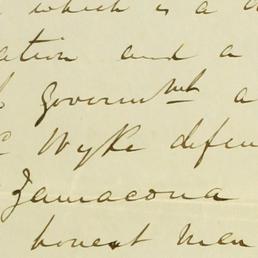 which is a
ation and a
Governmt a
Wyke defen
Zamacona
honest men